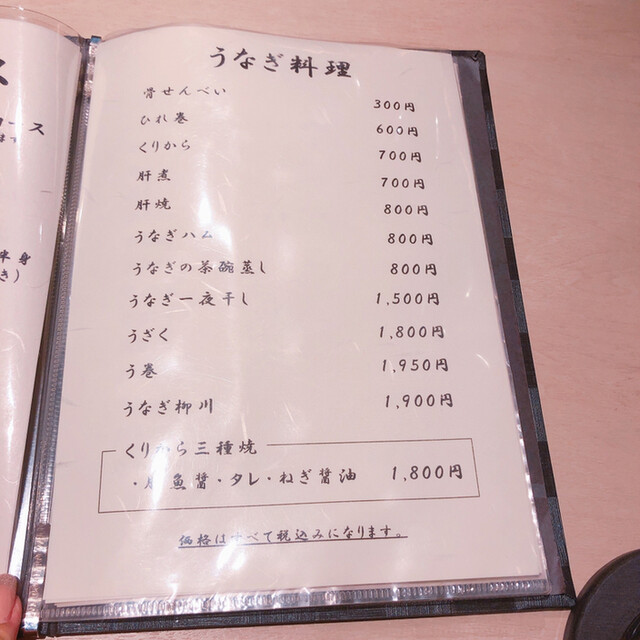 うなぎ料理
骨せんべい 300円
ひれ巻 600円
くりから 700円
肝煮 700円
肝焼 800円
うなぎハム 800円
うなぎの茶碗蒸し 800円
うなぎ一夜干し 1,500円
うざく 1,800円
う巻 1,950円
うなぎ柳川 1,900円
くりから三種焼
・魚醤・タレ・ねぎ醤油 1,800円
価格はすべて税込みになります。
ス
コース
半身
き）